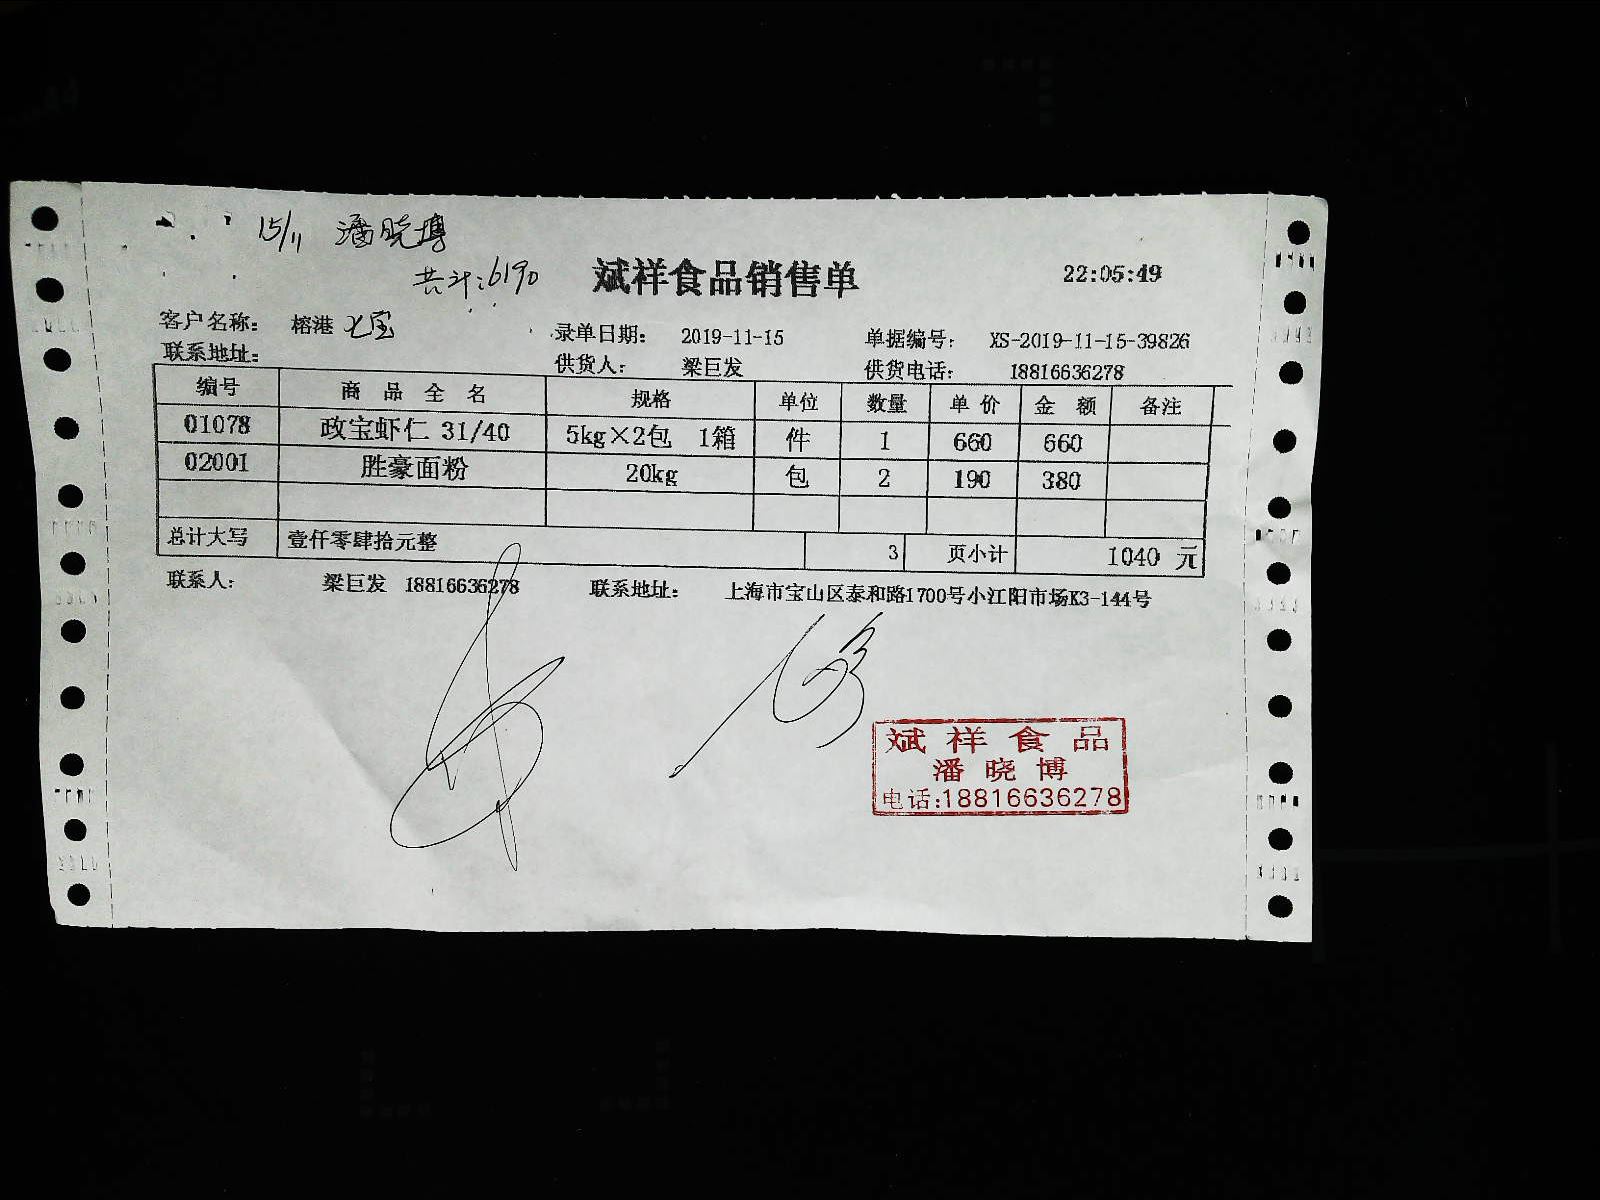 15/11 潘晓博
共计:6190
斌祥食品销售单 22:05:49
客户名称: 榕港 七宝 录单日期: 2019-11-15 单据编号: XS-2019-11-15-39826
联系地址: 供货人: 梁巨发 供货电话: 18816636278
编号 商 品 全 名 规格 单位 数量 单 价 金 额 备注
01078 政宝虾仁 31/40 5kg×2包 1箱 件 1 660 660
02001 胜豪面粉 20kg 包 2 190 380
总计大写 壹仟零肆拾元整 3 页小计 1040 元
联系人: 梁巨发 18816636278 联系地址: 上海市宝山区泰和路1700号小江阳市场K3-144号
斌祥食品
潘晓博
电话:18816636278